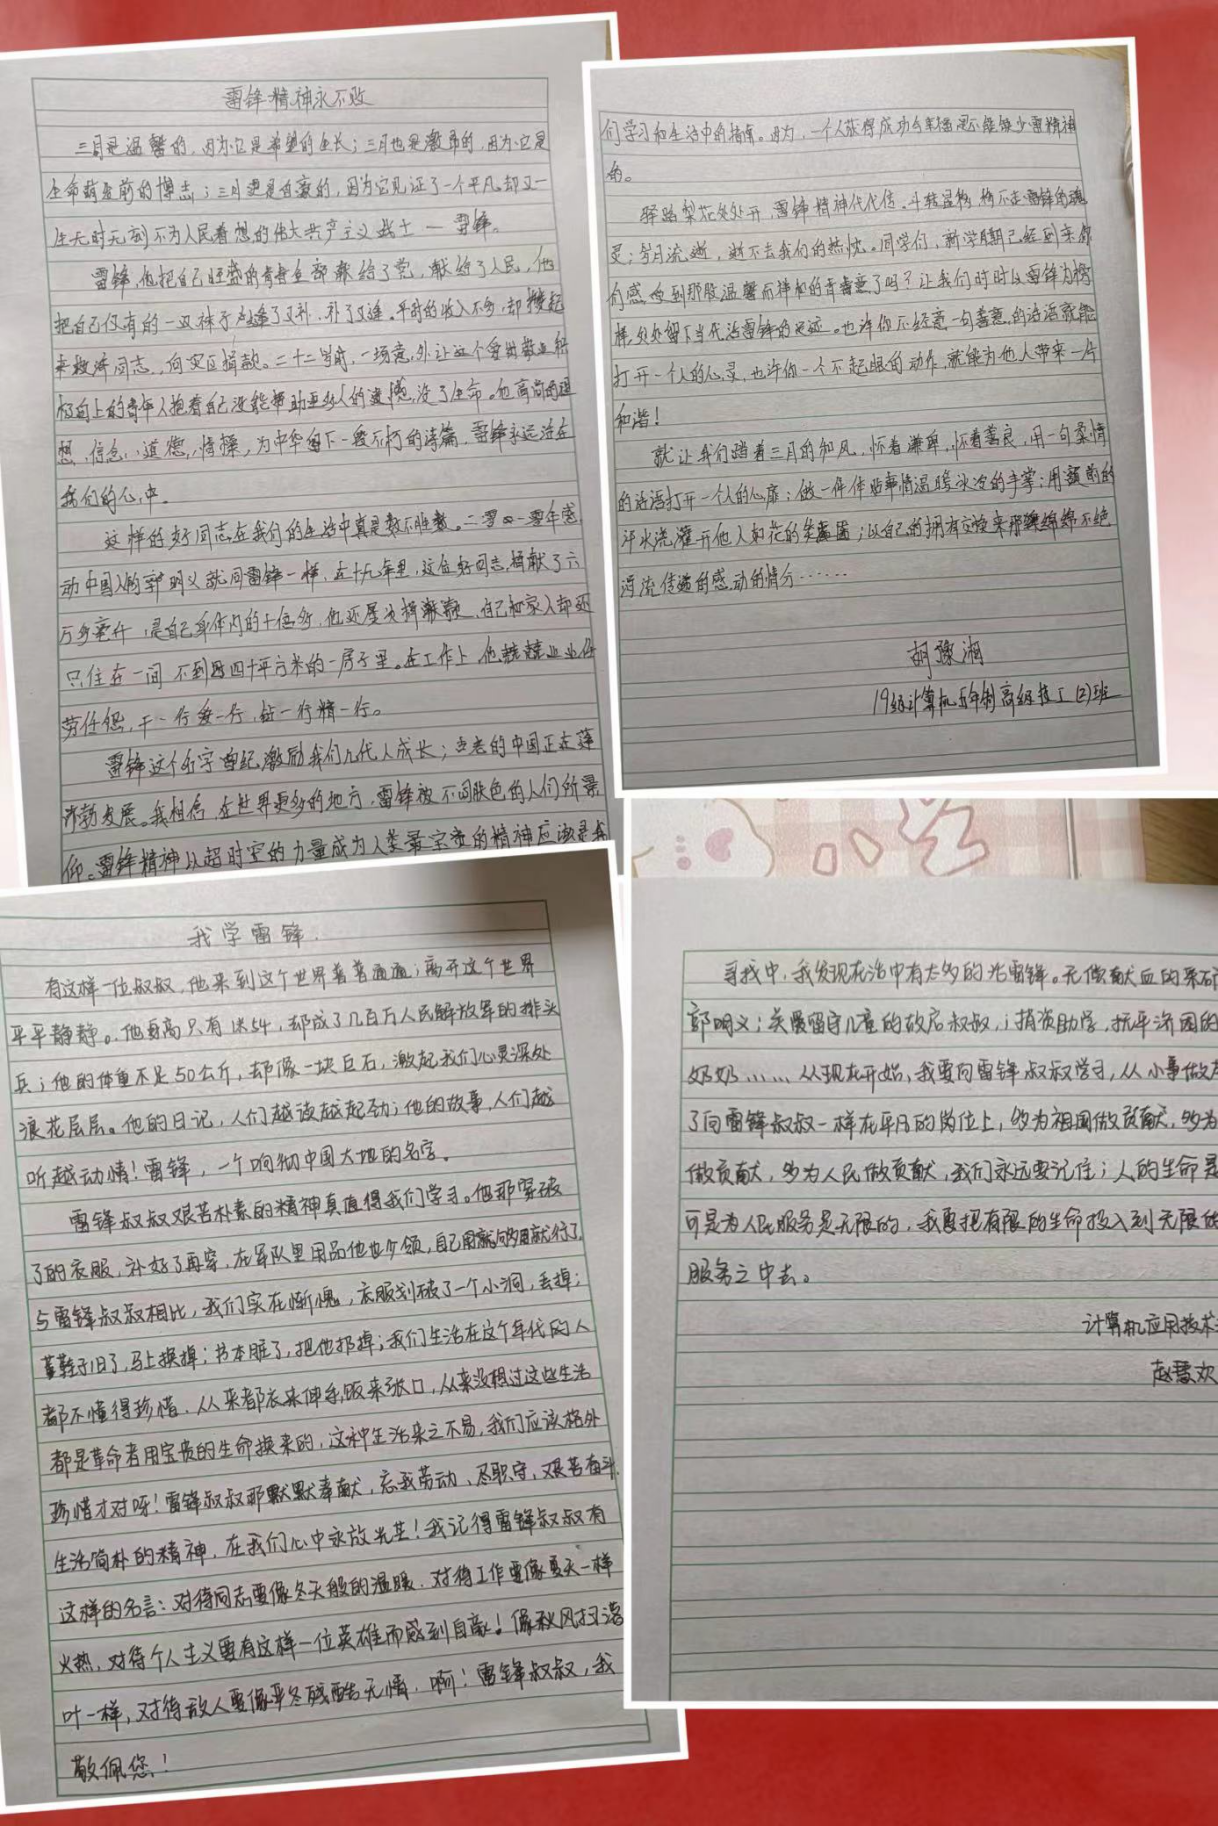 雷锋精神永不败
三月是温馨的，因为它是希望的生长；三月也是激昂的，因为它是
生命蹄疾前的博志；三月更是自豪的，因为它见证了一个平凡却又一
生无时无刻不为人民着想的伟大共产主义战士一雷锋。
雷锋，他把自己旺盛的青春全部献给了党，献给了人民，他
把自己仅有的一双袜子缝了又补，补了又缝。平时的收入不多，却攒起
来救济同志，向灾区捐款。二十二岁前，一场意外让这个
极向上的青年人抱着自己没能帮助更多人的遗憾，没了生命。他高尚的理
想、信念、道德，情操，为中华留下一段不朽的诗篇，雷锋永远活在
我们的心中。
这样的好同志在我们的生活中真是数不胜数。二零一零年感
动中国人的郭明义就同雷锋一样，在十九年里，这位好同志，捐献了六
万多毫升，是自己身体内的十倍多，他还屡次捐献款，自己和家人却还
只住在一间不到四十平方米的一房子里。在工作上，他兢兢业业任
劳任怨，干一行爱一行，钻一行精一行。
雷锋这个名字曾纪激励我们几代人成长；古老的中国正在蓬
渤发展。我相信，在世界更多的地方，雷锋被不同肤色的人们所景
仰。雷锋精神以超时空的力量成为人类最宝贵的精神应该是我
们学习和生活中的指南。因为，一个人获得成功是不能缺少雷精神
的。
驿路梨花处处开，雷锋精神代代传。斗转星移，移不走雷锋的魂
灵；岁月流逝，逝不去我们的热忱。同学们，新学期已经到来你
们感受到那股温馨而祥和的春意了吗？让我们时时以雷锋为榜
样，处处留下当代活雷锋的足迹。也许你不经意一句善意的话语就能
打开一个人的心灵，也许你一个不起眼的动作，就能为他人带来一片
和谐！
就让我们踏着三月的和风，怀着谦卑，怀着善良，用一句柔情
的话语打开一个人的心扉；做一件件好事情温暖冰冷的手掌；用额前的
汗水浇灌开他人如花的笑；以自己的拥有交换来那绵绵不绝
涓流传递的感动的情分……
胡豫湘
19级计算机五年制高级技工(2)班
我学雷锋
有这样一位叔叔，他来到这个世界普普通通；离开这个世界
平平静静。他身高只有1米54，却成了几百万人民解放军的排头
兵；他的体重不足50公斤，却像一块巨石，激起我们心灵深处
浪花层层。他的日记，人们越读越起劲；他的故事，人们越
听越动情！雷锋，一个响彻中国大地的名字。
雷锋叔叔艰苦朴素的精神真值得我们学习。他那穿破
了的衣服，补好了再穿，在军队里用品他也少领，自己用就够用就行了，
与雷锋叔叔相比，我们实在惭愧，衣服划破了一个小洞，丢掉；
鞋子旧了，马上换掉；书本脏了，把他扔掉；我们生活在这个年代的人
都不懂得珍惜，从来都衣来伸手，饭来张口，从来没想过这些生活
都是革命者用宝贵的生命换来的，这种生活来之不易，我们应该格外
珍惜才对呀！雷锋叔叔那默默奉献，忘我劳动、尽职守，艰苦奋斗
生活简朴的精神，在我们心中永放光芒！我记得雷锋叔叔有
这样的名言：对待同志要像冬天般的温暖，对待工作要像夏天一样
火热，对待个人主义要有这样一位英雄而感到自豪！像秋风扫落
叶一样，对待敌人要像严冬残酷无情，啊！雷锋叔叔，我
敬佩您！
寻找中，我发现在活中有太多的活雷锋。无偿献血的采矿
郭明义；关爱留守儿童的叔叔，；捐资助学，抚平济困的
奶奶……从现在开始，我要向雷锋叔叔学习，从小事做
了向雷锋叔叔一样在平凡的岗位上，多为祖国做贡献，多为
做贡献，多为人民做贡献，我们永远要记住；人的生命是
可是为人民服务是无限的，我要把有限的生命投入到无限的
服务之中去。
计算机应用技术
赵慧欢